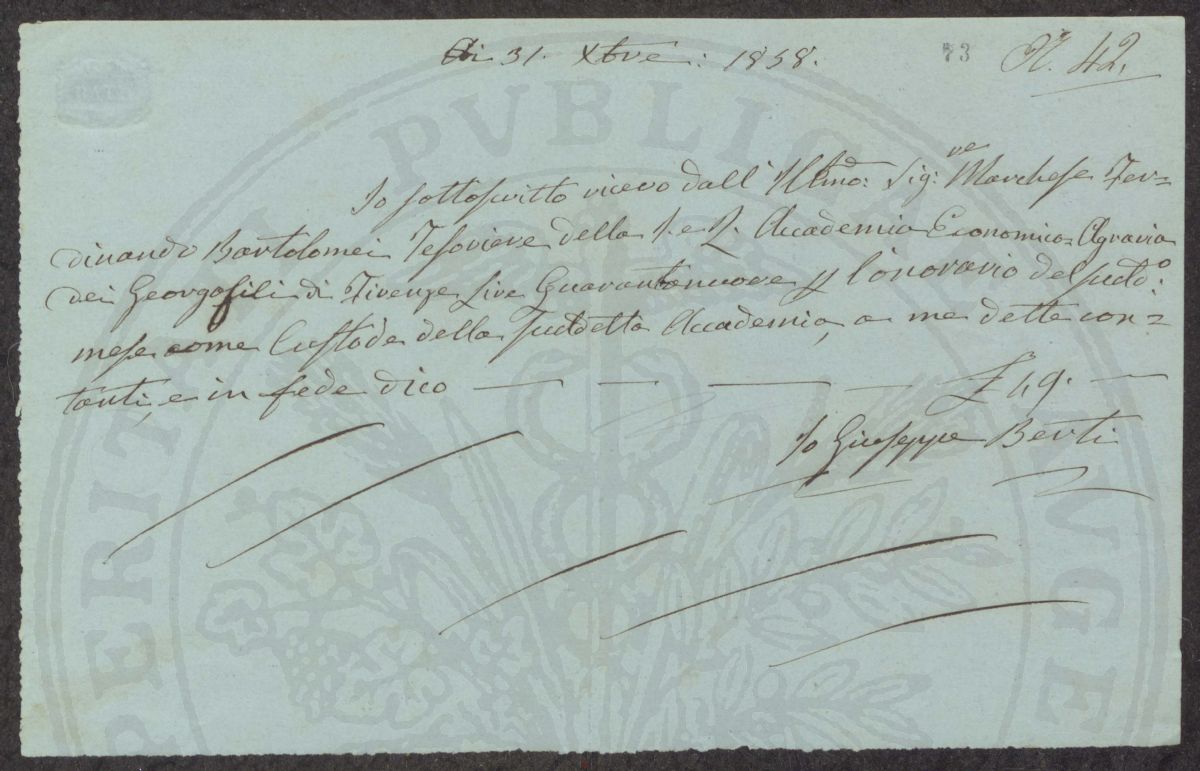 Adi 31. Xbre: 1858.
73
N. 42.
Io sottoscritto ricevo dall'Illmo: Sig:re Marchese Fer=
dinando Bartolomei Tesoriere della I. e R. Accademia Economico=Agraria
dei Georgofili di Firenze Lire Quarantanuove p l'onorario del sudd:o
mese come Custode della suddetta Accademia, a me dette con=
tanti, e in fede dico — — — — £ 49. —
Io Giuseppe Berti
PROSPERITATI PUBLICAE AUGE